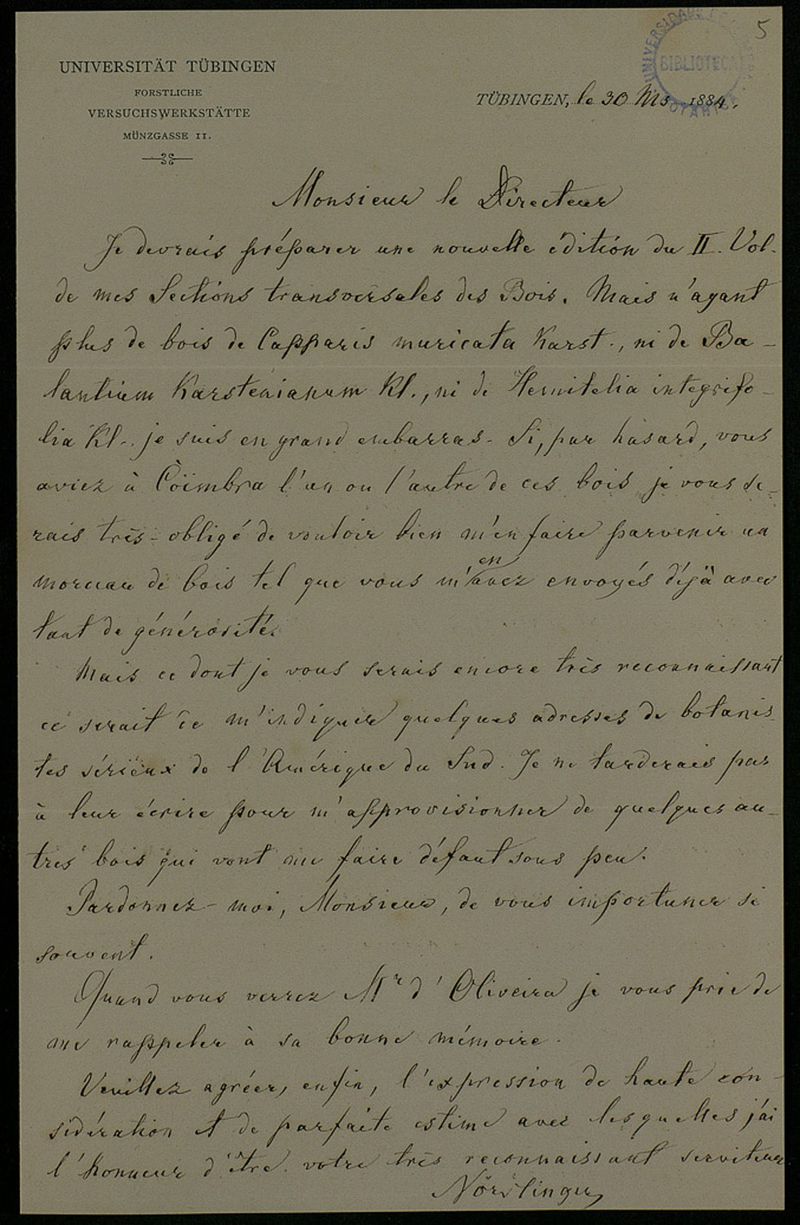 5
UNIVERSIDADE DE
BIBLIOTECA
BOTANICA
UNIVERSITÄT TÜBINGEN
FORSTLICHE
VERSUCHSWERKSTÄTTE
MÜNZGASSE 11.
TÜBINGEN, le 30 Ms 1884.
Monsieur le Directeur
Je devrais préparer une nouvelle édition du II. Vol.
de mes Sections transversales des Bois. Mais n'ayant
plus de bois de Capparis muricata Karst., ni de Ba-
lantium Karstenianum Kl., ni de Hemitelia integrifo-
lia Kl. je suis en grand embarras. Si, par hasard, vous
aviez à Coïmbra l'un ou l'autre de ces bois je vous se-
rais très-obligé de vouloir bien m'en faire parvenir un
morceau de bois tel que vous m'en avez envoyés déjà avec
tant de générosité.
Mais ce dont je vous serais encore très reconnaissant
ce serait de m'indiquer quelques adresses de botanis-
tes sérieux de l'Amérique du Sud. Je ne tarderais pas
à leur écrire pour m'approvisionner de quelques au-
tres bois qui vont me faire défaut sous peu.
Pardonnez-moi, Monsieur, de vous importuner si
souvent.
Quand vous verrez Mr d'Oliveira je vous prie de
me rappeler à sa bonne mémoire.
Veuillez agréer, enfin, l'expression de haute con-
sidération et de parfaite estime avec lesquelles j'ai
l'honneur d'être votre très reconnaissant serviteur
Nördlinger